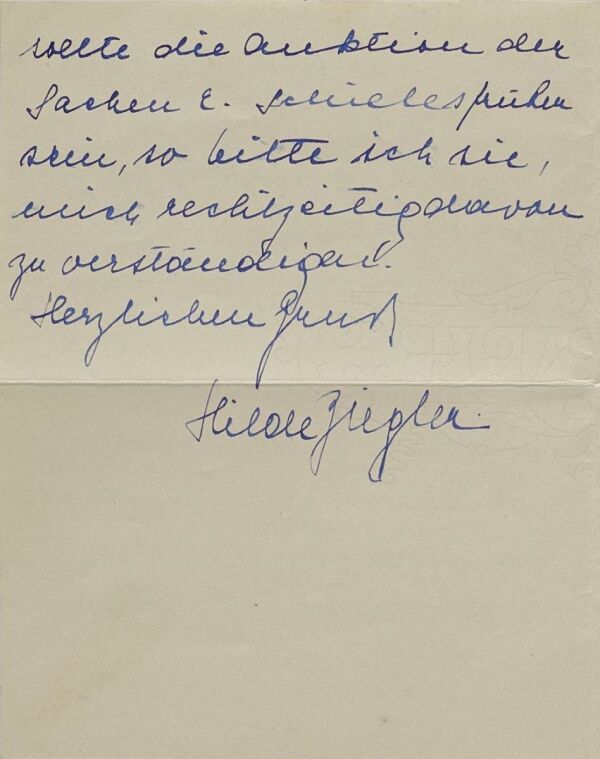 sollte die Auktion der
Sachen E. Schieles früher
sein, so bitte ich sie,
mich rechtzeitig davon
zu verständigen.
Herzlichen Gruß
Hilde Ziegler.